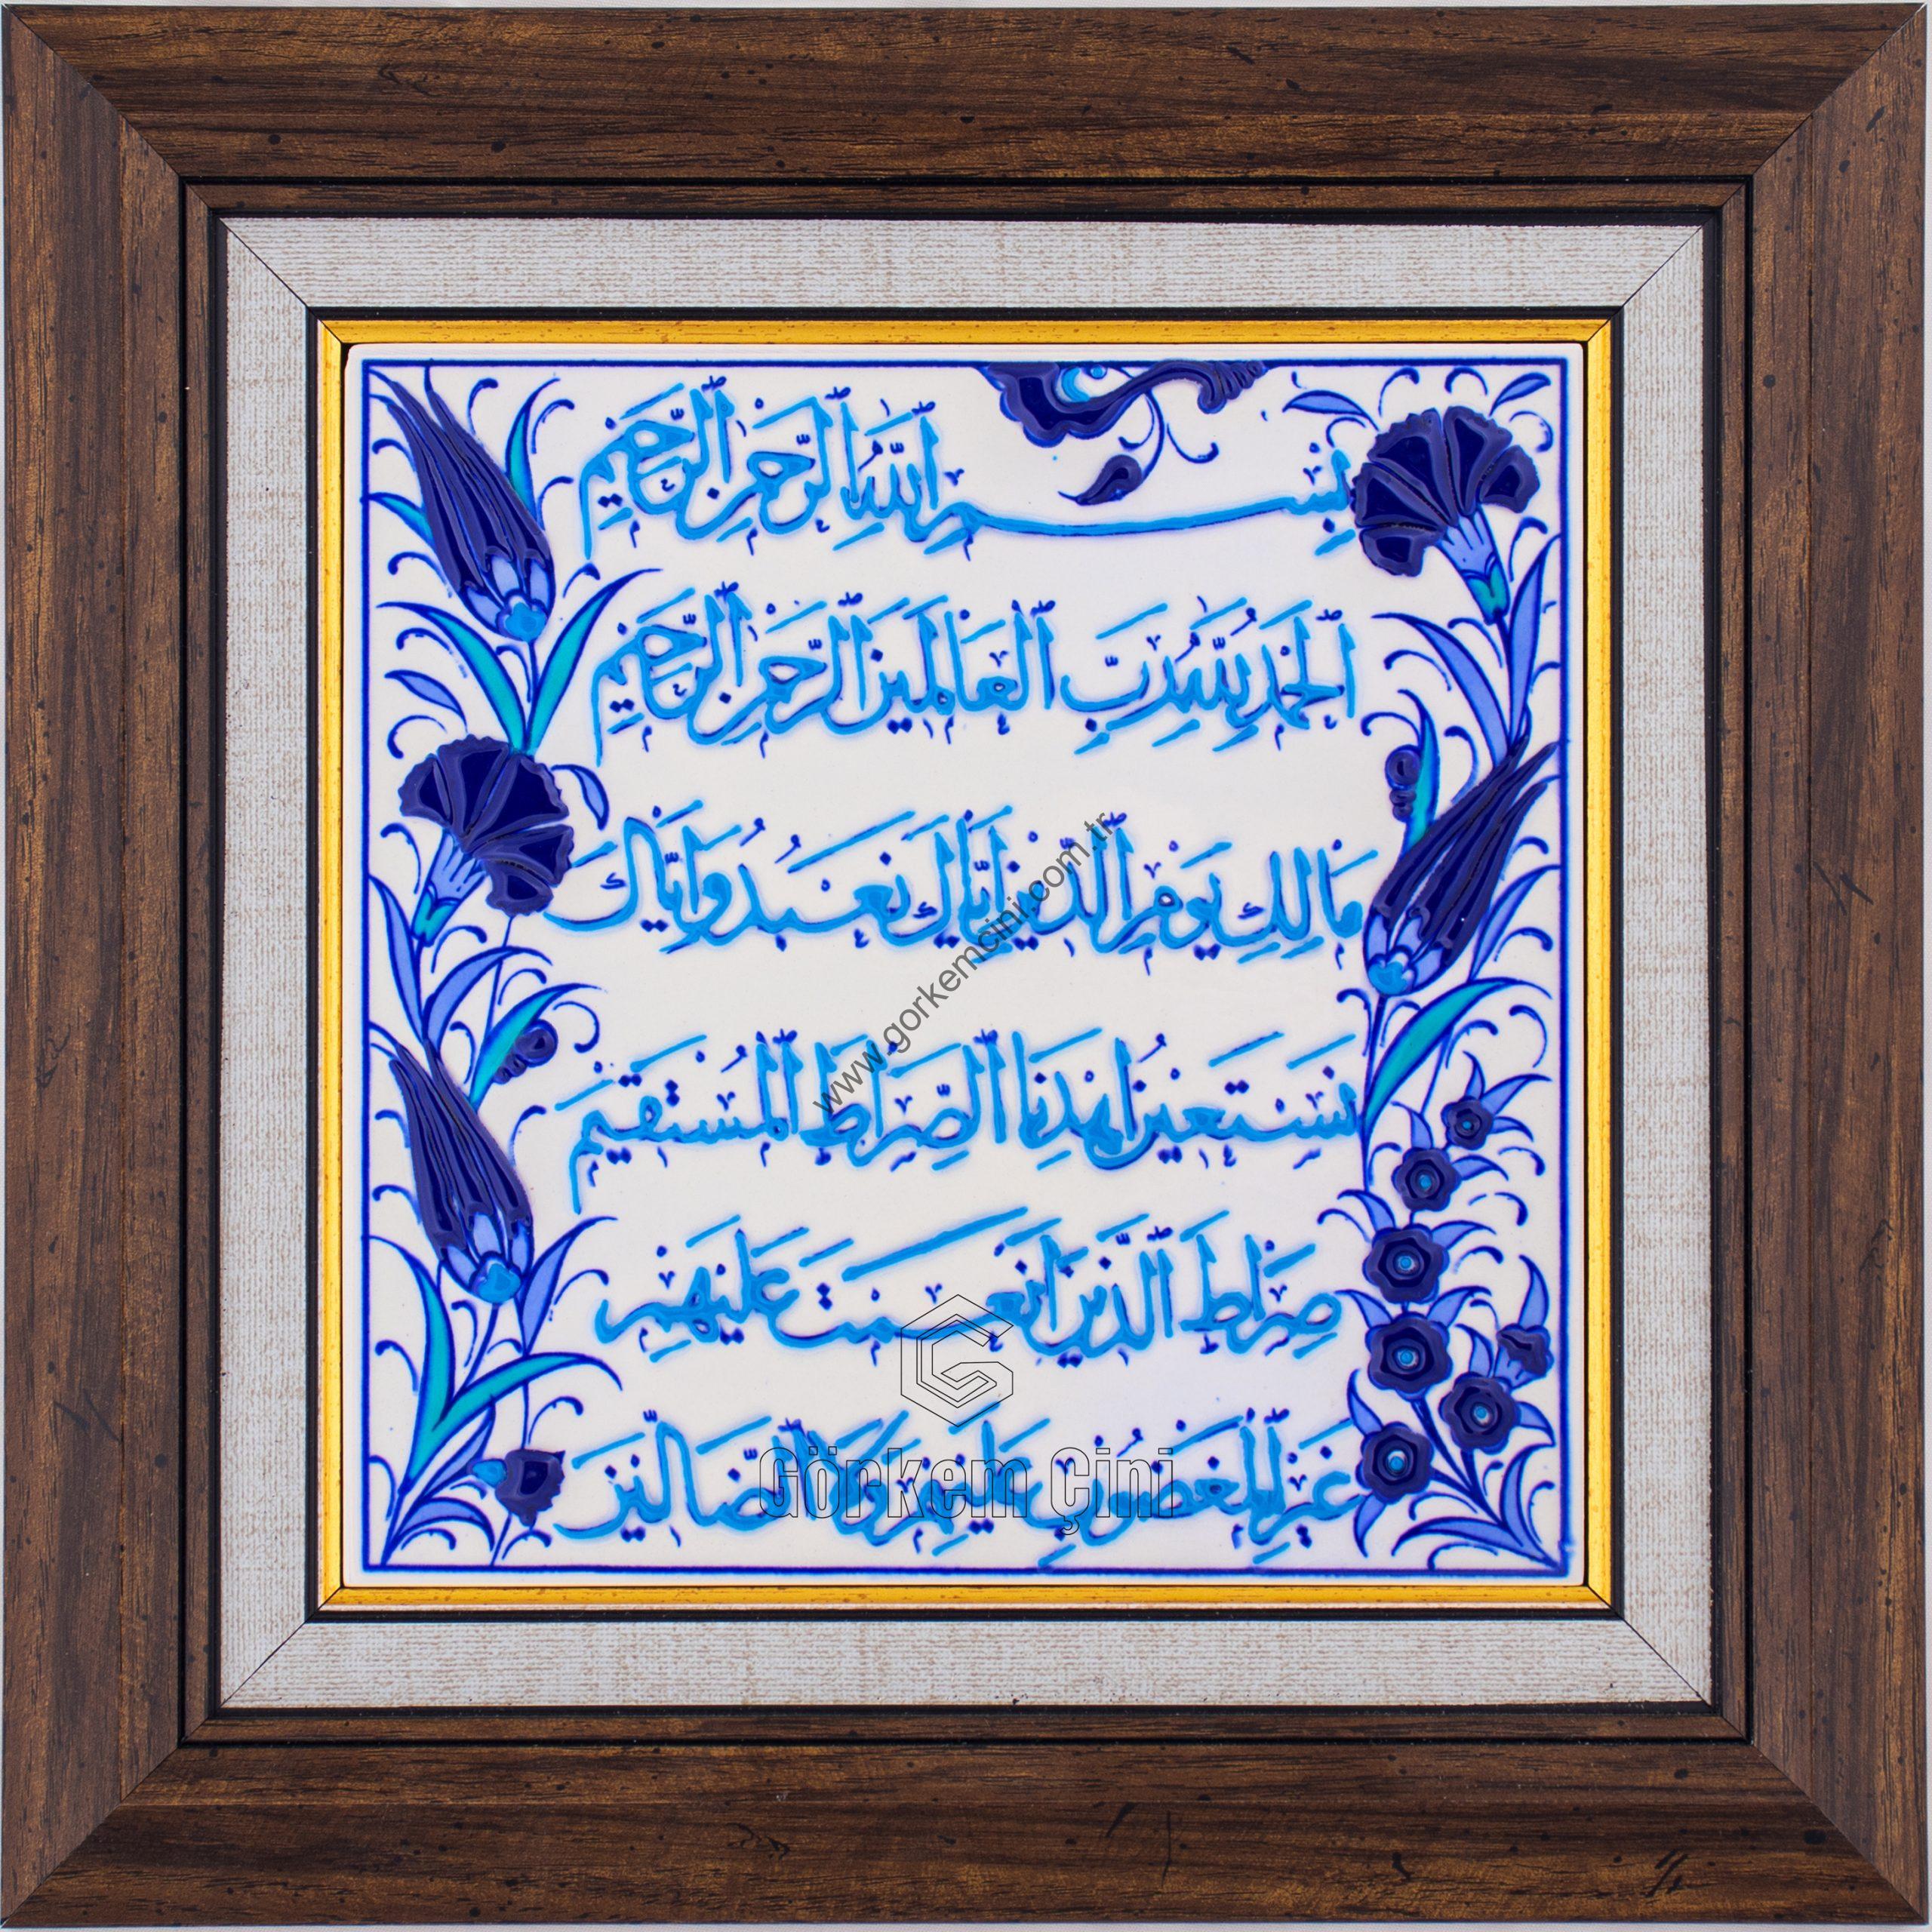 بِسْمِ اللهِ الرَّحْمٰنِ الرَّحِيمِ
اَلْحَمْدُ لِلّٰهِ رَبِّ الْعَالَمِينَ اَلرَّحْمٰنِ الرَّحِيمِ
مَالِكِ يَوْمِ الدِّينِ اِيَّاكَ نَعْبُدُ وَاِيَّاكَ
نَسْتَعِينُ اِهْدِنَا الصِّرَاطَ الْمُسْتَقِيمَ
صِرَاطَ الَّذِينَ اَنْعَمْتَ عَلَيْهِمْ
غَيْرِ الْمَغْضُوبِ عَلَيْهِمْ وَلَا الضَّالِّينَ
www.gorkemcini.com.tr
Görkem Çini